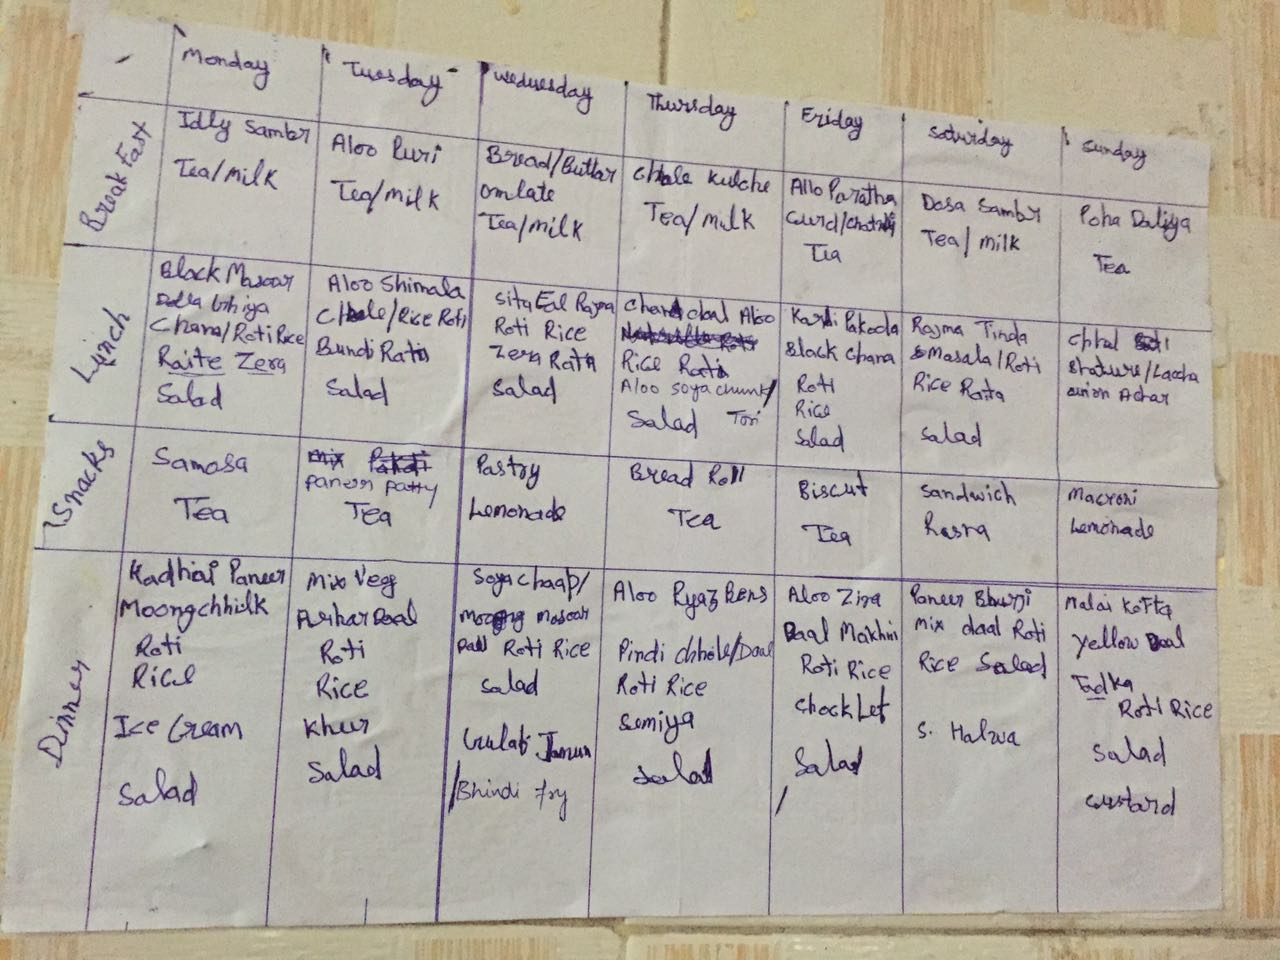 Monday Tuesday Wednesday Thursday Friday Saturday Sunday
Break Fast
Idly Sambr
Tea/milk
Aloo Puri
Tea/milk
Bread/Buttar
omlate
Tea/milk
Chhole Kulche
Tea/milk
Alloo Paratha
Curd/chatni
Tea
Dosa Sambr
Tea/milk
Poha Daliya
Tea
Lunch
Black Masoor
Chana/Roti Rice
Raite Zera
Salad
Aloo Shimala
Chhole/Rice Roti
Bundi Raita
Salad
Roti Rice
Zera Raita
Salad
Chana daal Aloo
Rice
Aloo Soya chunk/
Salad Tori
Kardi Pakoda
Black Chana
Roti
Rice
Salad
Rajma Tinda
Masala/Roti
Rice Raita
Salad
Bhature/Laccha
onion Achar
Snacks
Samosa
Tea
paneer patty
Tea
Pastry
Lemonade
Bread Roll
Tea
Biscut
Tea
Sandwich
Rasna
Macroni
Lemonade
Dinner
Kadhai Paneer
Moongchhilk
Roti
Rice
Ice Cream
Salad
Mix Veg
Arhar Daal
Roti
Rice
Kheer
Salad
Soyachaap/
Masoor
Roti Rice
Salad
Gulab Jamun
/Bhindi fry
Aloo Pyaz Bens
Pindi chhole/Daal
Roti Rice
Semiya
Salad
Aloo Zira
Daal Makhni
Roti Rice
Chocklet
Salad
Paneer Bhurji
mix daal Roti
Rice Salad
S. Halwa
Malai Kofta
Yellow Daal
Tadka
Roti Rice
Salad
custard